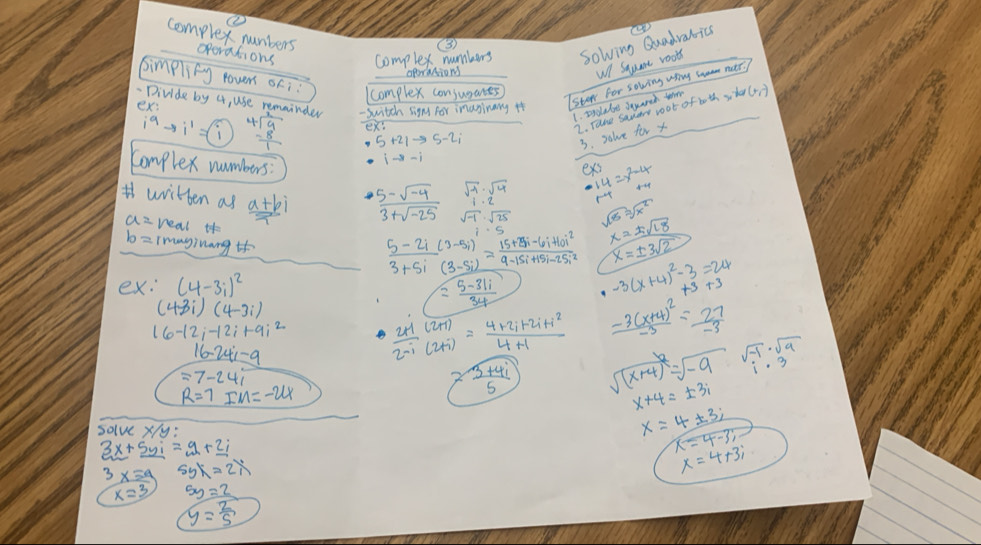 ②
Complex numbers
operations
Simplify Powers of i:
- Divide by 4, use remainder
ex:
i⁹ → i¹ = i
4√9
-8
1
Complex numbers:
# written as a+bi
a = real #
b = imaginary #
ex: (4-3i)²
(4-3i) (4-3i)
16-12i-12i+9i²
16-24i-9
= 7-24i
R=7 IM=-24
Solve x/y:
3x+5yi = 9+2i
3x=9
x=3
5yi=2i
5y=2
y=2/5
③
Complex numbers
operations
Complex conjugates
- Switch sign for imaginary #
ex:
• 5+2i → 5-2i
• i → -i
• 5-√-4 / 3+√-25
√-1 · √4
i · 2
√-1 · √25
i · 5
5-2i (3-5i) / 3+5i (3-5i) = 15+25i-6i+10i² / 9-15i+15i-25i²
= 5-31i / 34
• 2+i (2+i) / 2-i (2+i) = 4+2i+2i+i² / 4+1
= 3+4i / 5
④
Solving Quadratics
w/ Square roots
Steps for solving using square roots:
1. Isolate squared term
2. Take square root of both sides (+,-)
3. Solve for x
ex:
• 14 = x²-4
+4 +4
√18 = √x²
x = ±√18
x = ±3√2
• -3(x+4)²-3 = 24
+3 +3
-3(x+4)² / -3 = 27 / -3
√(x+4)² = √-9
√-1 · √9
i · 3
x+4 = ±3i
x = 4 ±3i
x = 4-3i
x = 4+3i